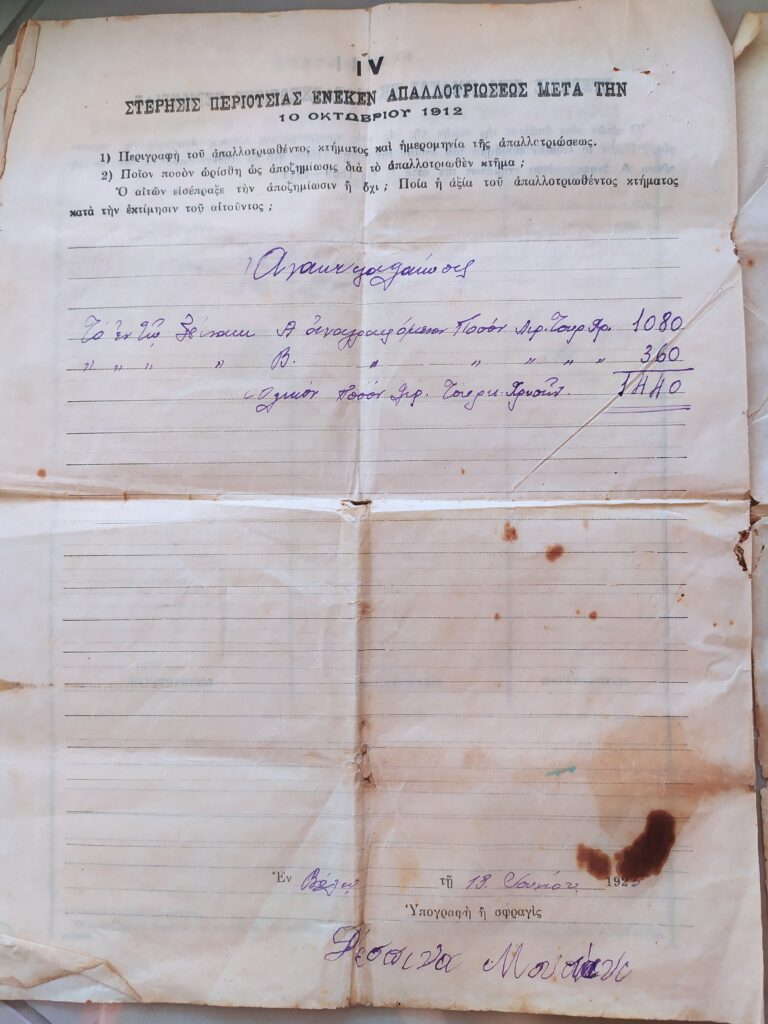 IV
ΣΤΕΡΗΣΙΣ ΠΕΡΙΟΤΣΙΑΣ ΕΝΕΚΕΝ ΑΠΑΛΛΟΤΡΙΩΣΕΩΣ ΜΕΤΑ ΤΗΝ
10 ΟΚΤΩΒΡΙΟΥ 1912
1) Περιγραφὴ τοῦ ἀπαλλοτριωθέντος κτήματος καὶ ἡμερομηνία τῆς ἀπαλλοτριώσεως.
2) Ποῖον ποσὸν ὡρίσθη ὡς ἀποζημίωσις διὰ τὸ ἀπαλλοτριωθὲν κτῆμα ;
Ὁ αἰτῶν εἰσέπραξε τὴν ἀποζημίωσιν ἢ ὄχι ; Ποία ἡ ἀξία τοῦ ἀπαλλοτριωθέντος κτήματος
κατὰ τὴν ἐκτίμησιν τοῦ αἰτοῦντος ;
Ἀνακεφαλαίωσις
Τὸ ἐν τῷ Πίνακι Α ἀναγραφόμενον Ποσὸν Λιρ. Τουρ. Χρ. 1080
" " " " Β. " " " " " 360
Ὁλικὸν Ποσὸν Λιρ. Τουρκ. Χρυσῶν. 1440
Ἐν τῇ 19 192
Ὑπογραφὴ ἢ σφραγὶς
Δέσποινα